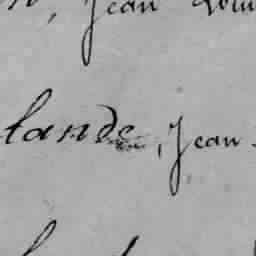 , Jean Loui
lande, Jean-